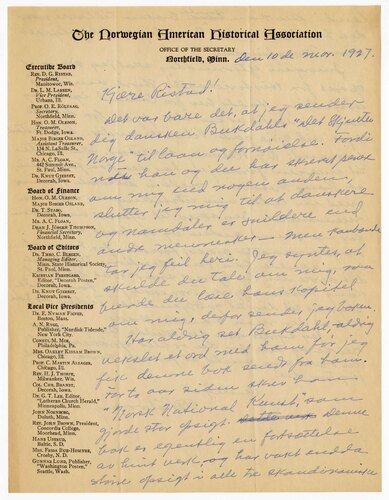 The Norwegian American Historical Association
OFFICE OF THE SECRETARY
Northfield, Minn.
Den 10 de nov. 1927.
Executive Board
REV. D. G. RISTAD,
President,
Manitowoc, Wis.
DR. L. M. LARSON,
Vice President
Urbana, Ill.
PROF. O. E. ROLVAAG,
Secretary,
Northfield, Minn.
HON. O. M. OLESON,
Treasurer,
Ft. Dodge, Iowa.
MAJOR BIRGER OSLAND,
Assistant Treasurer,
Chicago, Ill.
MR. A. C. FLOAN,
St. Paul, Minn.
DR. KNUT GJERSET,
Decorah, Iowa.
Board of Finance
HON. O. M. OLESON,
MAJOR BIRGER OSLAND,
Decorah, Iowa.
MR. A. C. FLOAN,
Financial Secretary,
Northfield, Minn.
Board of Editors
DR. THEO. C. BLEGEN,
Managing Editor,
Minn. State Historical Society,
St. Paul, Minn.
KRISTIAN PRESTGARD,
Editor, "Decorah Posten",
Decorah, Iowa.
DR. KNUT GJERSET,
Decorah, Iowa.
Local Vice Presidents
Boston, Mass.
Publisher, "Nordisk Tidende",
New York City.
Philadelphia, Pa.
Chicago, Ill.
PROF. C. MARTIN ALSAGER,
Chicago, Ill.
REV. H. J. THORPE,
Milwaukee, Wis.
COL. CHR. BRANDT,
Decorah, Iowa.
DR. G. T. LEE, Editor,
"Lutheran Church Herald,"
Minneapolis, Minn.
Duluth, Minn.
REV. JOHN BROWN, President,
Concordia College,
Moorhead, Minn.
Baltic, S. D.
Crosby, N. D.
GUNNAR LUND, Publisher,
"Washington Posten",
Seattle, Wash.
Kjære Ristad!
Det var bare det, at jeg sender
dig dansken Bukdahls "Det Skjulte
Norge" til laan og fornøielse. Fordi
han og der har skrevet pent
om mig end nogen anden,
slutter jeg mig til at danskere
og namdøler er snildere end
andre mennesker. Men kanhende
tar jeg feil heri. Jeg syntes, at
skulde du tale om mig, saa
burde du læse hans kapitel
om mig, derfor sender jeg boken.
Har aldrig set Bukdahl, aldrig
vekslet et ord med ham før jeg
fik denne bok sendt fra ham.
For to aar siden skrev han
"Norsk National Kunst," som
gjorde stor opsigt. Denne
bok er egentlig en fortsettelse
av hint verk og har vakt endda
større opsigt i alle tre skandinaviske